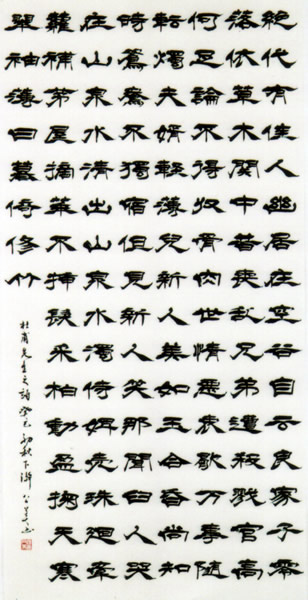 絕代有佳人幽居在空谷自云良家子零
落依草木關中昔喪亂兄弟遭殺戮官高
何足論不得收骨肉世情惡衰歇万事隨
転燭夫婿輕薄兒新人美如玉合昏尚知
時鴛鴦不獨宿但見新人笑那聞旧人哭
在山泉水清出山泉水濁侍婢賣珠迴牽
蘿補茅屋摘華不插髮采柏動盈掬天寒
翠袖薄日暮倚修竹
杜甫先生之詩癸巳初秋下澣